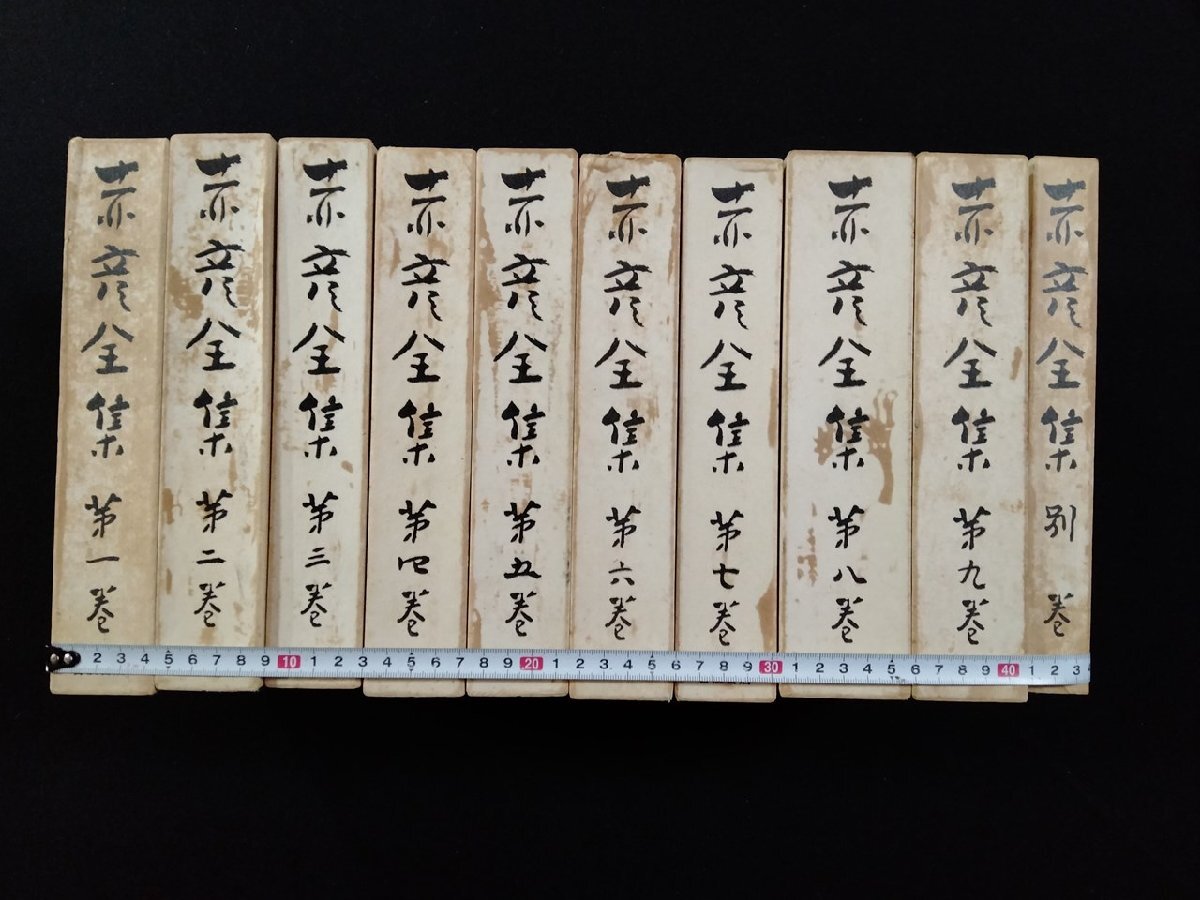 赤彦全集 第一巻
赤彦全集 第二巻
赤彦全集 第三巻
赤彦全集 第四巻
赤彦全集 第五巻
赤彦全集 第六巻
赤彦全集 第七巻
赤彦全集 第八巻
赤彦全集 第九巻
赤彦全集 別巻
2 3 4 5 6 7 8 9 10 1 2 3 4 5 6 7 8 9 20 1 2 3 4 5 6 7 8 9 30 1 2 3 4 5 6 7 8 9 40 1 2 3